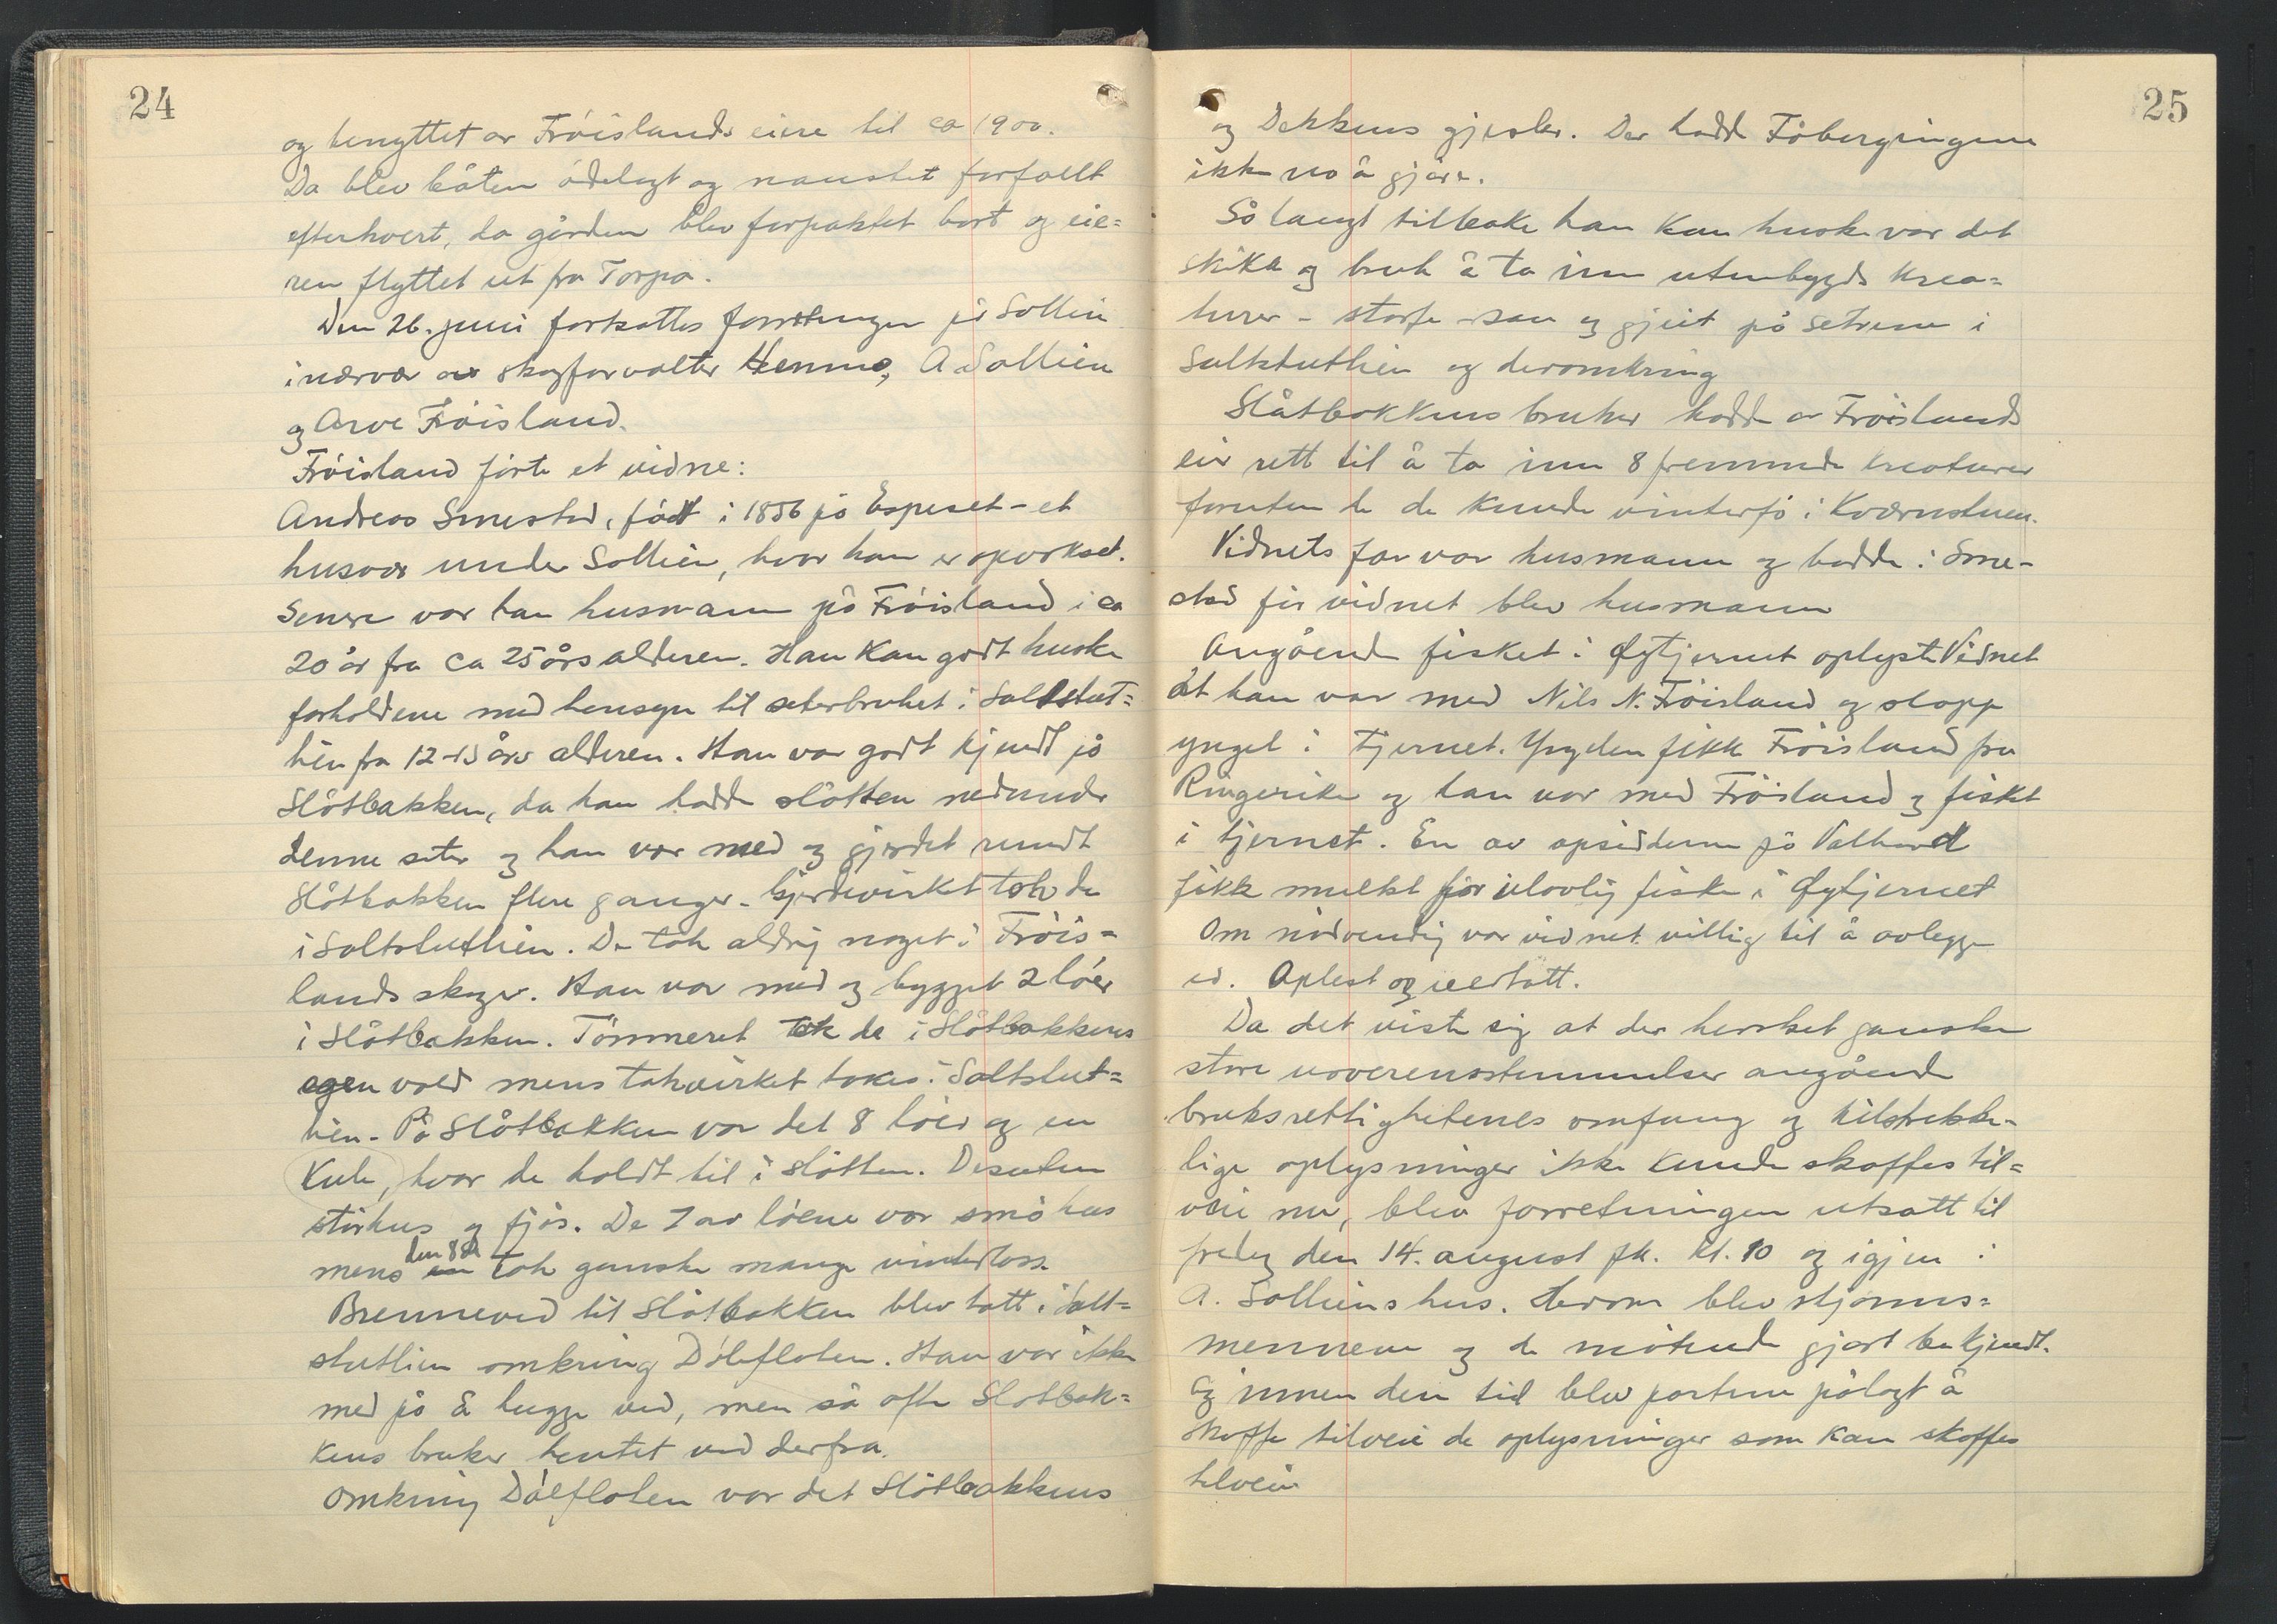 24
og benyttet av Fröislands eiere til ca 1900.
Da blev båten ödelagt og naustet forfallt
efterhvert, da gården blev forpaktet bort og eie=
ren flyttet ut fra Torpa.
Den 26. juni fortsattes forretningen på Sollien
i nærvær av skogforvalter Hemmo, A Sollien
og Arve Fröisland.
Fröisland förte et vidne:
Andreas Smestad, födt i 1856 på Espeset - et
husvær under Sollien, hvor han er opvokset.
Senere var han husmann på Fröisland i ca
20 år fra ca 25 års alderen. Han kan godt huske
forholdene med hensyn til seterbruket i Saltstut=
lien fra 12-13 års alderen. Han var godt kjendt på
Slåtbakken, da han hadde slåtten nedunder
denne seter og han var med og gjerdet rundt
Slåtbakken flere ganger. Gjerdevirket tok de
i Saltstutlien. De tok aldrig noget i Fröis=
lands skoger. Han var med og bygget 2 löer
i Slåtbakken. Tömmeret tok de i Slåtbakkens
egen vold mens takvirket tokes i Saltstut=
lien. På Slåtbakken var det 8 löer og en
Kule, hvor de holdt til i slåtten. Desuten
störhus og fjös. De 7 av löene var små hus
mens den 8de tok ganske mange vinterlass.
Brenneved til Slåtbakken blev tatt i Salt=
stutlien omkring Dölefloten. Han var ikke
med på å hugge ved, men så ofte Slåtbak=
kens bruker hentet ved derfra.
Omkring Dölefloten var det Slåtbakkens
25
og Dekkens gjesler. Der hadde Fåbergingene
ikke no å gjöre.
Så langt tilbake han kan huske var det
skikk og bruk å ta inn utenbygds krea=
turer - storfe - sau og gjeit på setrene i
Saltstutlien og deromkring
Slåtbakkens bruker hadde av Fröislands
eier rett til å ta inn 8 fremmede kreaturer
foruten de de kunde vinterfö i Kværnstuen.
Vidnets far var husmann og bodde i Sme-
stad för vidnet blev husmann
Angående fisket i Øytjernet oplyste Vidnet
at han var med Nils N. Fröisland og slapp
yngel i tjernet. Yngelen fikk Fröisland fra
Ringerike og han var med Fröisland og fisket
i tjernet. En av opsidderne på Valhovd
fikk mulkt for ulovlig fiske i Øytjernet
Om nödvendig var vidnet villig til å avlegge
ed. Oplest og vedtatt.
Da det viste sig at der hersket ganske
store uoverensstemmelser angående
bruksrettighetenes omfang og tilstrekke-
lige oplysninger ikke kunde skaffes til=
veie nu, blev forretningen utsatt til
fredag den 14. august fk. kl. 10 og igjen i
A. Solliens hus. Herom blev skjönns=
mennene og de mötende gjort bekjendt.
Og innen den tid blev partene pålagt å
skaffe tilveie de oplysninger som kan skaffes
tilveie